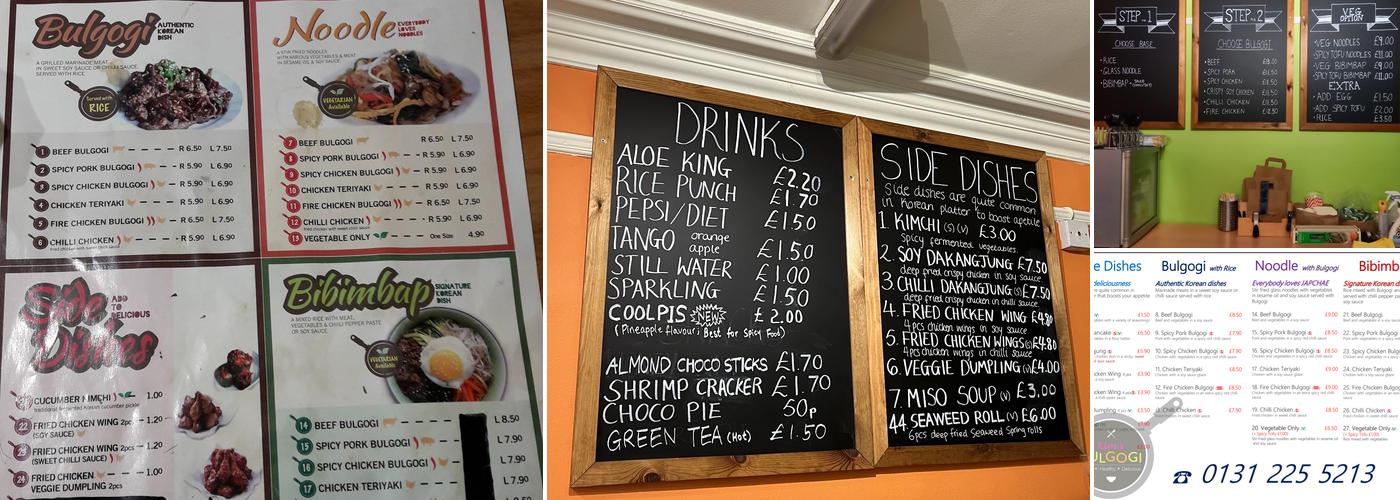 Bulgogi AUTHENTIC KOREAN DISH
A GRILLED MARINADE MEAT
IN SWEET SOY SAUCE OR CHILLI SAUCE.
SERVED WITH RICE
Served with RICE
1 BEEF BULGOGI R 6.50 L 7.50
2 SPICY PORK BULGOGI R 5.90 L 6.90
3 SPICY CHICKEN BULGOGI R 5.90 L 6.90
4 CHICKEN TERIYAKI R 5.90 L 6.90
5 FIRE CHICKEN BULGOGI R 5.90 L 6.90
6 CHILLI CHICKEN R 5.90 L 6.90
fried chicken with sweet chilli sauce
Noodle EVERYBODY LOVES NOODLES
A STIR FRIED NOODLES
WITH VARIOUS VEGETABLES & MEAT
IN SESAME OIL & SOY SAUCE.
VEGETARIAN Available
7 BEEF BULGOGI R 6.50 L 7.50
8 SPICY PORK BULGOGI R 5.90 L 6.90
9 SPICY CHICKEN BULGOGI R 5.90 L 6.90
10 CHICKEN TERIYAKI R 5.90 L 6.90
11 FIRE CHICKEN BULGOGI R 5.90 L 6.90
12 CHILLI CHICKEN R 5.90 L 6.90
fried chicken with sweet chilli sauce
13 VEGETABLE ONLY One Size 4.90
Side Dishes ADD TO DELICIOUS
CUCUMBER KIMCHI 1.00
traditional fermented Korean cucumber pickle
22 FRIED CHICKEN WING 2pc 1.20
(SOY SAUCE)
23 FRIED CHICKEN WING 2pcs 1.20
(SWEET CHILLI SAUCE)
24 FRIED CHICKEN 1.00
VEGGIE DUMPLING 2pcs
Bibimbap SIGNATURE KOREAN DISH
A MIXED RICE WITH MEAT,
VEGETABLES & CHILLI PEPPER PASTE
OR SOY SAUCE.
VEGETARIAN Available
14 BEEF BULGOGI L 8.50
15 SPICY PORK BULGOGI L 7.90
16 SPICY CHICKEN BULGOGI L 7.90
17 CHICKEN TERIYAKI L 7.90
DRINKS
ALOE KING £2.20
RICE PUNCH £1.70
PEPSI/DIET £1.50
TANGO orange apple £1.50
STILL WATER £1.00
SPARKLING £1.50
COOLPIS NEW £2.00
(Pineapple flavour; Best for Spicy Food)
ALMOND CHOCO STICKS £1.70
SHRIMP CRACKER £1.70
CHOCO PIE 50p
GREEN TEA (Hot) £1.50
SIDE DISHES
Side dishes are quite common
in Korean platter to boost apetite
1. KIMCHI (S) (V) £3.00
Spicy fermented vegetables.
2. SOY DAKANGJUNG £7.50
deep fried crispy chicken in soy sauce
3. CHILLI DAKANGJUNG (S) £7.50
deep fried crispy chicken in chilli sauce
4. FRIED CHICKEN WING £4.80
4pcs chicken wings in soy sauce
5. FRIED CHICKEN WINGS (S) £4.80
4pcs chicken wings in chilli sauce
6. VEGGIE DUMPLING (V) £4.00
7. MISO SOUP (V) £3.00
44. SEAWEED ROLL (V) £6.00
6pcs deep fried Seaweed Spring rolls
STEP 1
CHOOSE BASE
• RICE
• GLASS NOODLE
• BIBIMBAP
STEP 2
CHOOSE BULGOGI
• BEEF
• SPICY PORK
• SPICY CHICKEN
• CRISPY SOY CHICKEN
• CHILLI CHICKEN
• FIRE CHICKEN
VEG OPTION
• VEG NOODLES £9.00
• SPICY TOFU NOODLES £11.00
• VEG BIBIMBAP £9.00
• SPICY TOFU BIBIMBAP £11.00
EXTRA
• ADD EGG £1.50
• ADD SPICY TOFU £2.00
• RICE £3.50
e Dishes
Bulgogi with Rice
Authentic Korean dishes
Marinade meats in a sweet soy sauce or
chilli sauce served with rice
8. Beef Bulgogi £8.50
9. Spicy Pork Bulgogi £7.90
10. Spicy Chicken Bulgogi £7.90
11. Chicken Teriyaki
12. Fire Chicken Bulgogi £8.50
13. Chilli Chicken £7.90
Noodle with Bulgogi
Everybody loves JAPCHAE
Stir fried glass noodles with vegetables
in sesame oil and soy sauce served with
Bulgogi
14. Beef Bulgogi £9.00
15. Spicy Pork Bulgogi £8.50
16. Spicy Chicken Bulgogi £8.50
17. Chicken Teriyaki £9.00
18. Fire Chicken Bulgogi £9.00
19. Chilli Chicken £8.50
20. Vegetable Only
(+ Spicy Tofu £1.00)
Bibimb
Signature Korean d
22. Beef Bulgogi
23. Spicy Pork Bulgogi
24. Spicy Chicken Bul
25. Fire Chicken Bulg
26. Chilli Chicken
27. Vegetable Only
ULGOGI
☎ 0131 225 5213